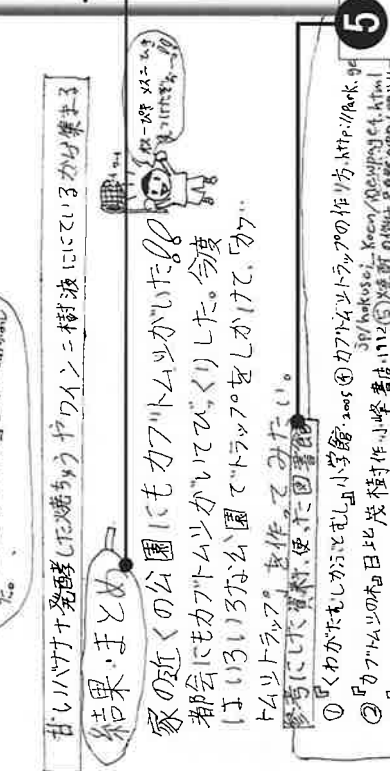 甘いバナナや発酵した焼ちゅうやワイン=樹液ににているから集まる
結果・まとめ
家の近くの公園にもカブトムシがいた!!
都会にもカブトムシがいてびっくりした。今度
はいろいろな公園でトラップをしかけて、「カブ
トムシトラップ」を作ってみたい。
オス一ぴき メス二ひき
見つけたぞぉー!!
5
参考にした資料、使った図書館
①『くわがたむしかぶとむし』小学館・2005④カブトムシトラップの作り方.http://park.ge
jp/hokusei_Koen/newpage1.html
②『カブトムシの木』日比茂樹作.小峰書店.1992⑤